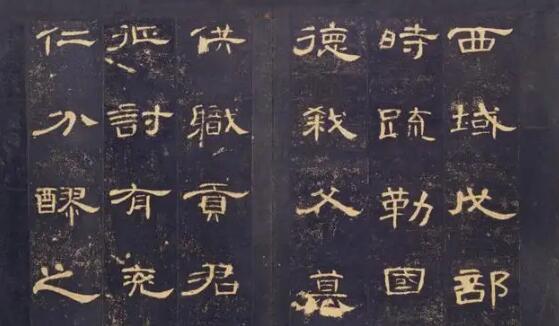 西域戊部
時疏勒國
德弒父篡
供職貢君
征討有兗
仁分醪之